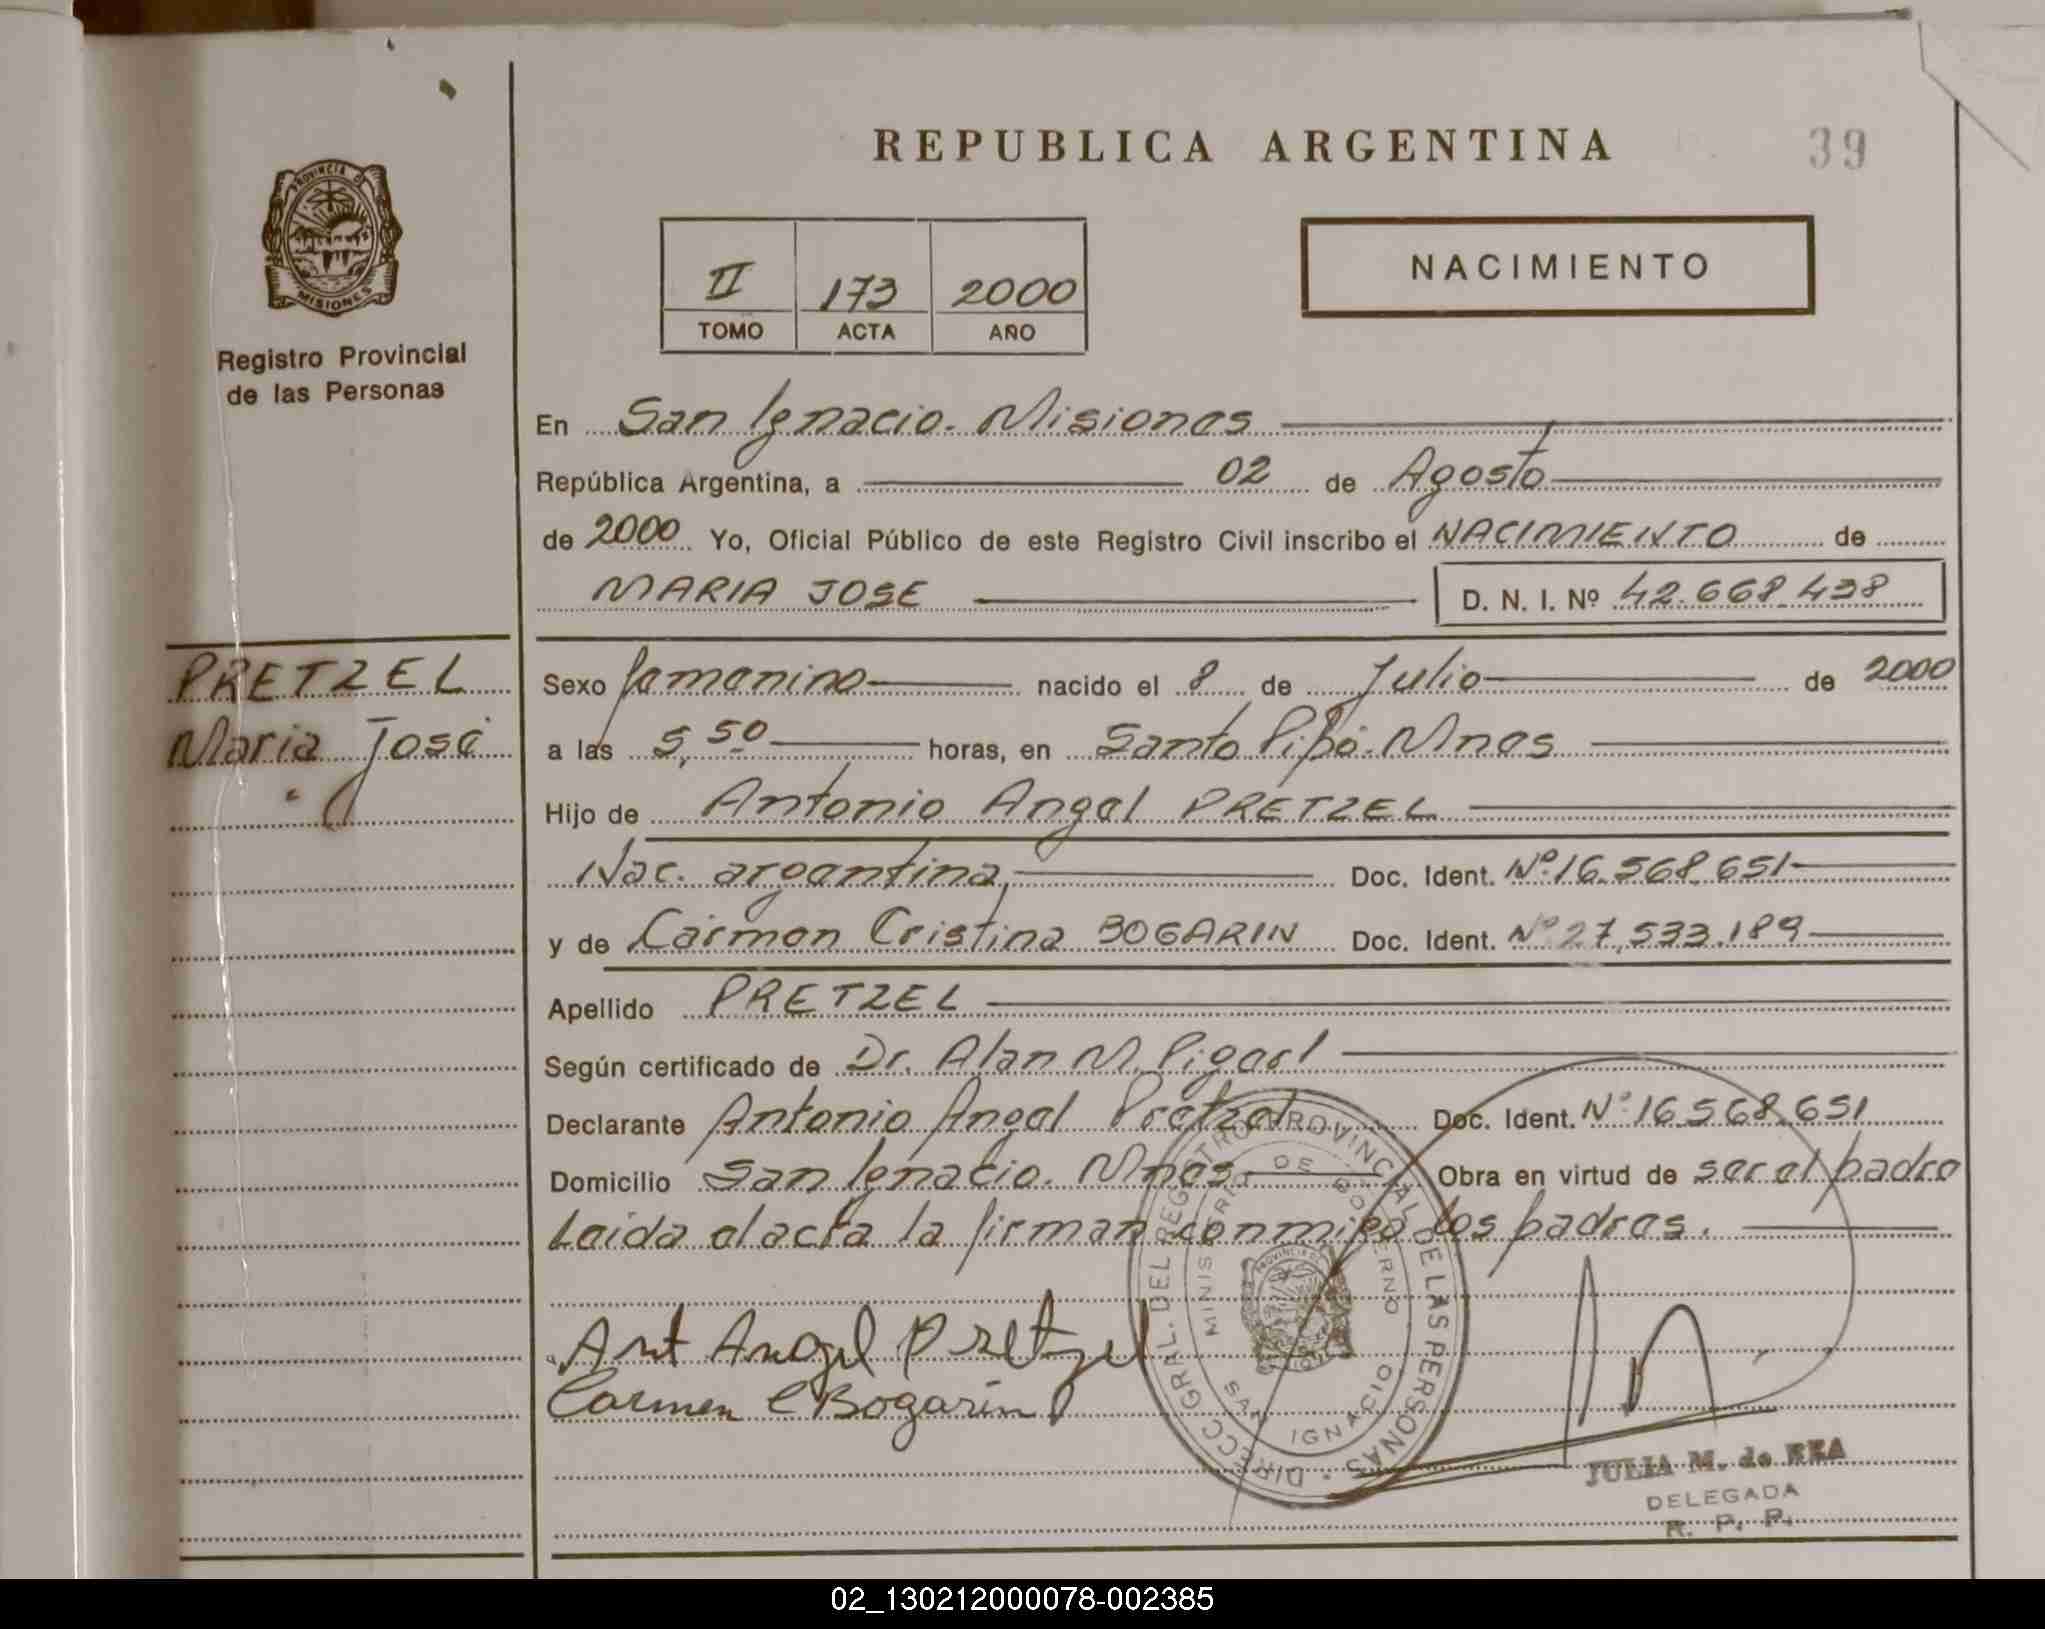 REPUBLICA ARGENTINA
39
PROVINCIA DE
MISIONES
Registro Provincial
de las Personas
II 173 2000
TOMO ACTA AÑO
NACIMIENTO
En San Ignacio. Misiones
República Argentina, a 02 de Agosto
de 2000 Yo, Oficial Público de este Registro Civil inscribo el NACIMIENTO de
MARIA JOSE D. N. I. Nº 42.668.438
PRETZEL
Maria José
Sexo femenino nacido el 8 de Julio de 2000
a las 5,50 horas, en Santo Pipó. Mnes
Hijo de Antonio Angel PRETZEL
Nac. argentina, Doc. Ident. Nº 16.568.651
y de Carmen Cristina BOGARIN Doc. Ident. Nº 27.533.189
Apellido PRETZEL
Según certificado de Dr. Alan M.
Declarante Antonio Angel Pretzel Doc. Ident. Nº 16.568.651
Domicilio San Ignacio. Mnes Obra en virtud de ser el padre
Leida el acta la firman conmigo los padres.
DIRECC GRAL. DEL REGISTRO PROVINCIAL DE LAS PERSONAS
MINISTERIO DE GOBIERNO
SAN IGNACIO
Ant Angel Pretzel
Carmen C Bogarín
JULIA M. de REA
DELEGADA
R. P. P.
02_130212000078-002385